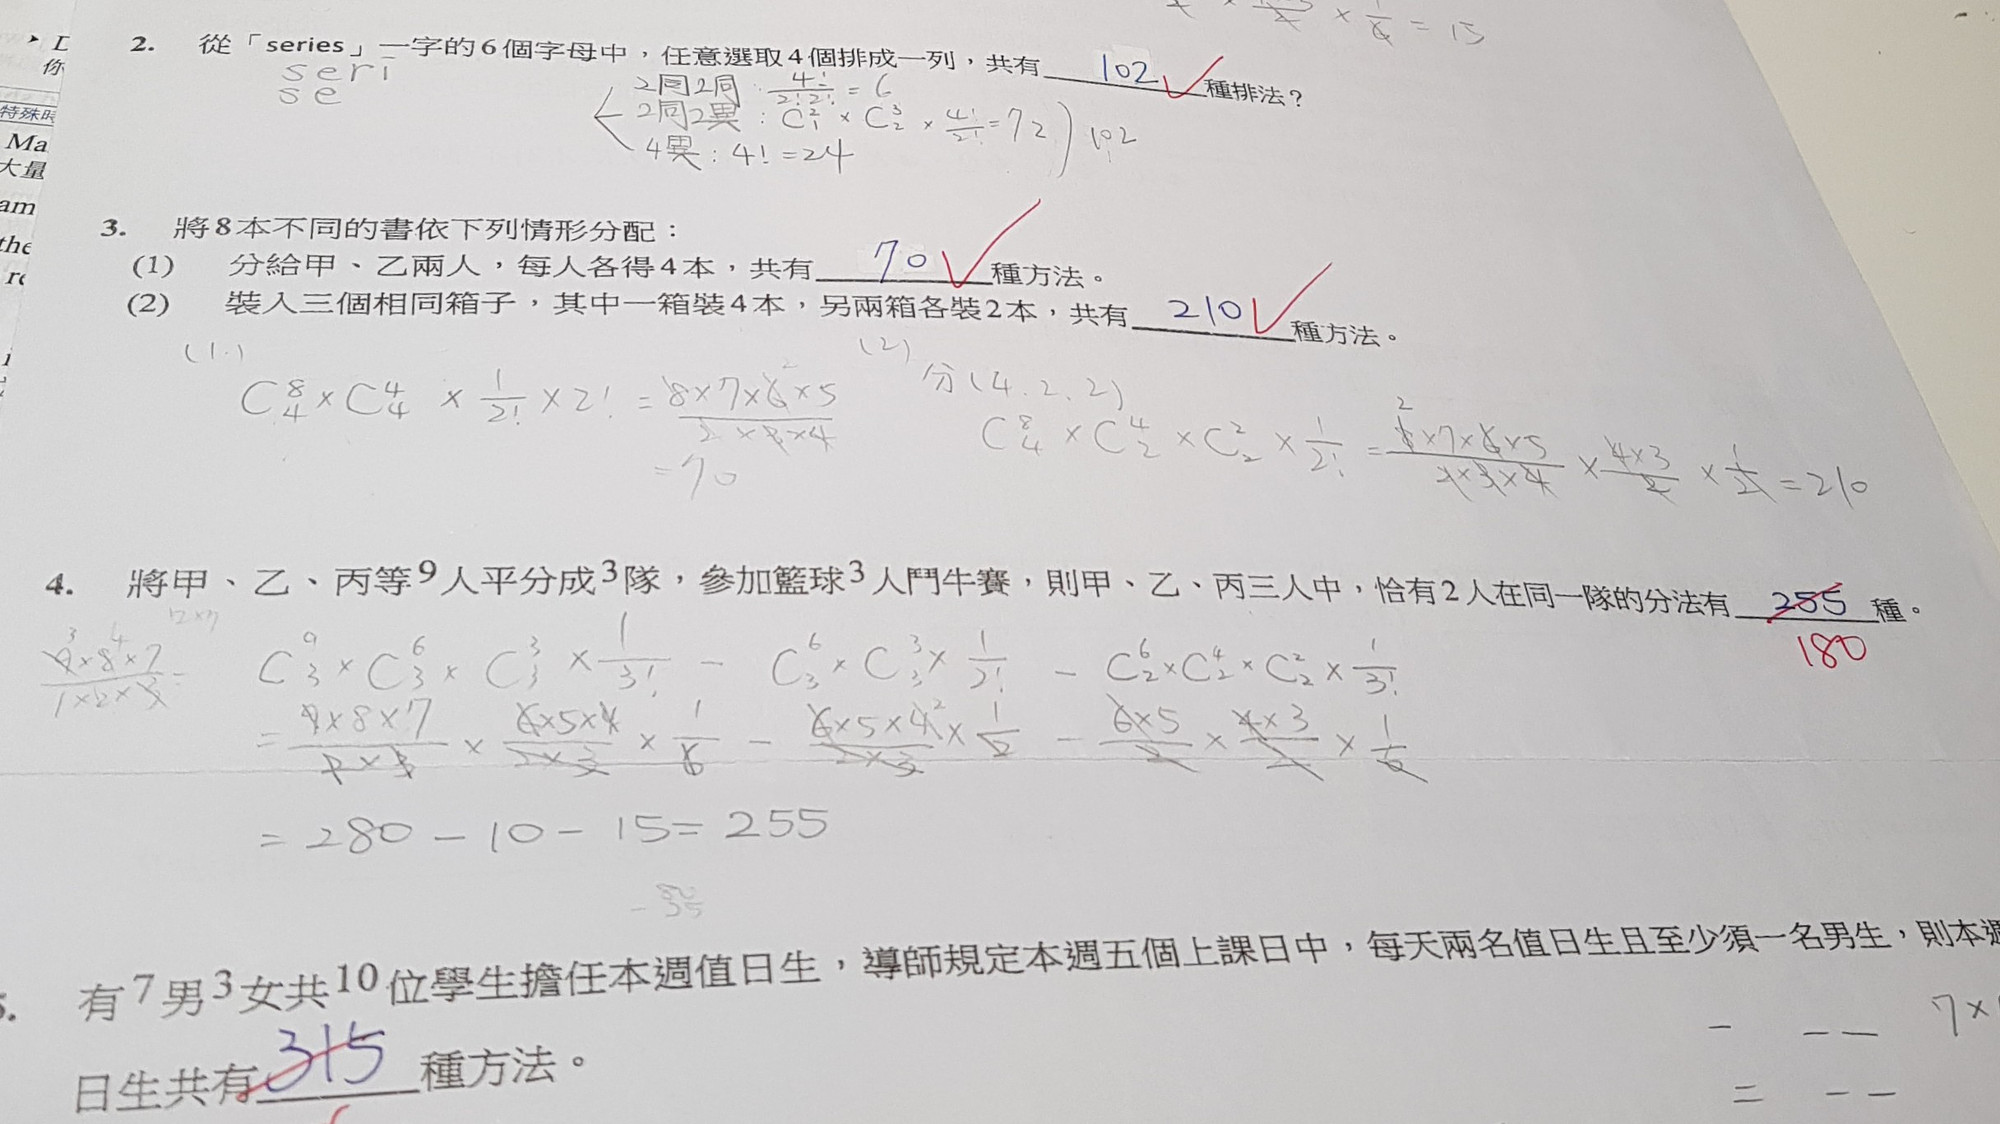 = 15
2. 從「series」一字的6個字母中，任意選取4個排成一列，共有 102 種排法？
seri
se
2同2同：4!/2!2! = 6
2同2異：C²₁ × C³₂ × 4!/2! = 72
4異：4! = 24
102
3. 將8本不同的書依下列情形分配：
(1) 分給甲、乙兩人，每人各得4本，共有 70 種方法。
(2) 裝入三個相同箱子，其中一箱裝4本，另兩箱各裝2本，共有 210 種方法。
(1.)
C⁸₄ × C⁴₄ × 1/2! × 2! = 8×7×6×5/2×3×4
= 70
(2)
分(4.2.2)
C⁸₄ × C⁴₂ × C²₂ × 1/2! = 8×7×6×5/2×3×4 × 4×3/2 × 1/2 = 210
4. 將甲、乙、丙等9人平分成3隊，參加籃球3人鬥牛賽，則甲、乙、丙三人中，恰有2人在同一隊的分法有 255 種。
180
9×8×7/1×2×3 =
C⁹₃ × C⁶₃ × C³₃ × 1/3! − C⁶₃ × C³₃ × 1/2! − C⁶₂ × C⁴₂ × C²₂ × 1/3!
= 9×8×7/2×3 × 6×5×4/2×3 × 1/6 − 6×5×4/2×3 × 1/2 − 6×5/2 × 4×3/2 × 1/6
= 280 − 10 − 15 = 255
有7男3女共10位學生擔任本週值日生，導師規定本週五個上課日中，每天兩名值日生且至少須一名男生，則本週
日生共有 315 種方法。
一 — —
二 — —
7×
特殊時
Ma
大量
am
the